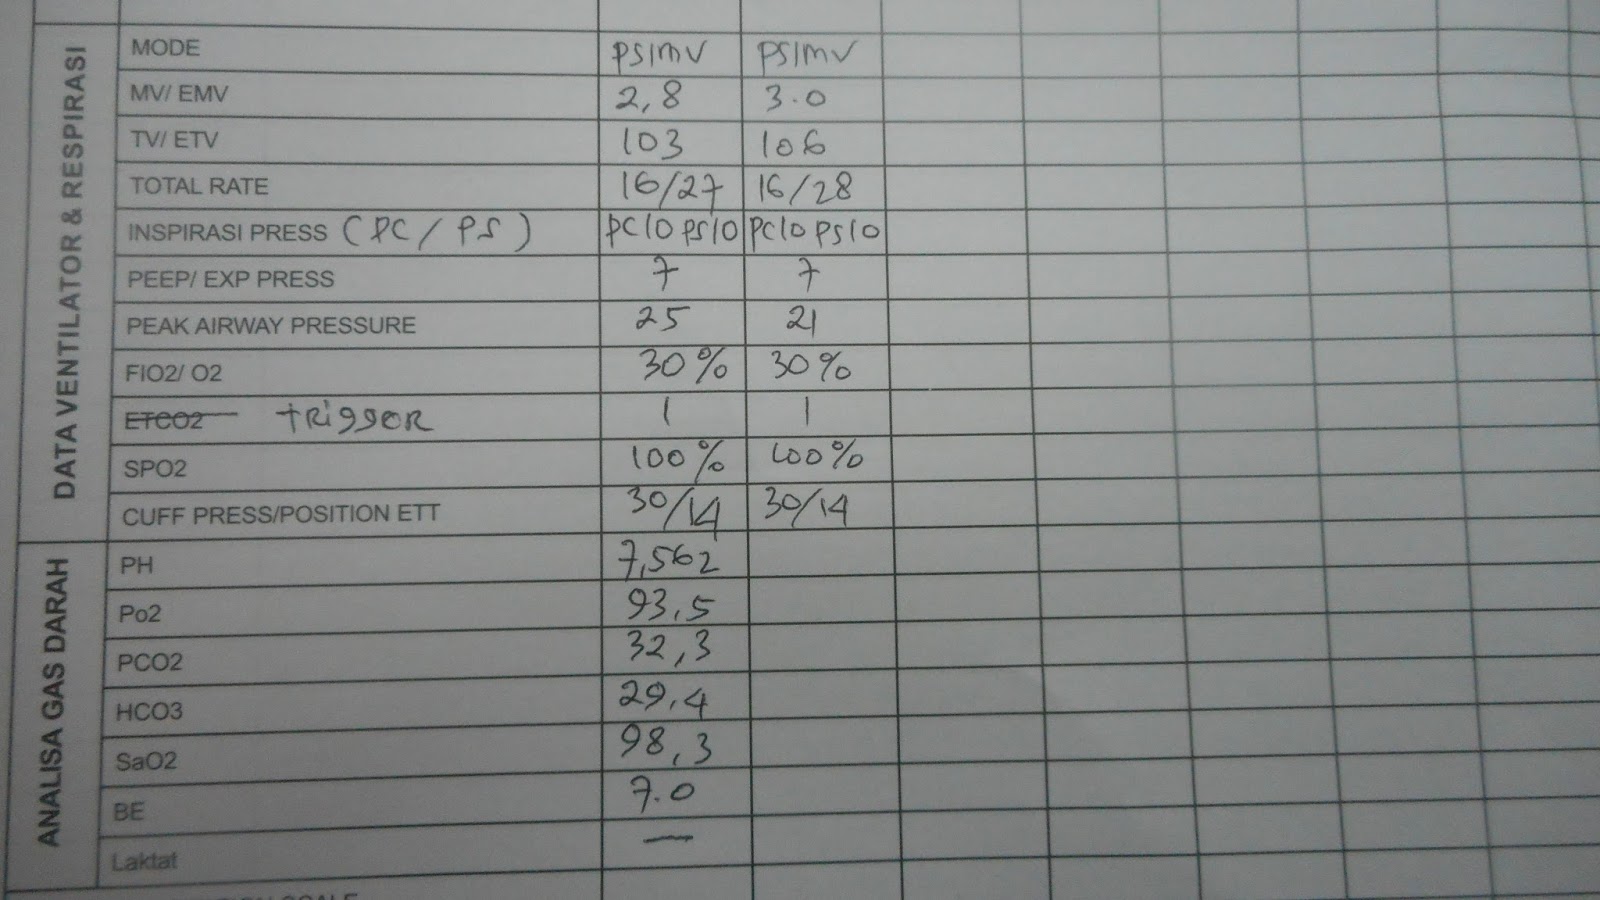 DATA VENTILATOR & RESPIRASI
MODE PSIMV PSIMV
MV/ EMV 2,8 3.0
TV/ ETV 103 106
TOTAL RATE 16/27 16/28
INSPIRASI PRESS (PC / PS) PC10 PS10 PC10 PS10
PEEP/ EXP PRESS 7 7
PEAK AIRWAY PRESSURE 25 21
FIO2/ O2 30% 30%
ETCO2 TRiggeR 1 1
SPO2 100% 100%
CUFF PRESS/POSITION ETT 30/14 30/14
ANALISA GAS DARAH
PH 7,562
Po2 93,5
PCO2 32,3
HCO3 29,4
SaO2 98,3
BE 7.0
Laktat —